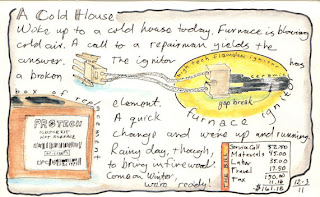 A Cold House
Woke up to a cold house today. Furnace is blowing
cold air. A call to a repairman yields the
answer. The ignitor has
a broken
high tech flameless ignitor
ceramic
gap break
furnace ignitor
box of replacement
PROTECH
element.
A quick
change and we're up and running.
Rainy day, though,
to bring in firewood!
Come on Winter,
we're ready!
THE BILL
Service Call 52.50
Materials 45.00
Labor 35.00
Travel 17.50
Tax
$161.16
12.3
11